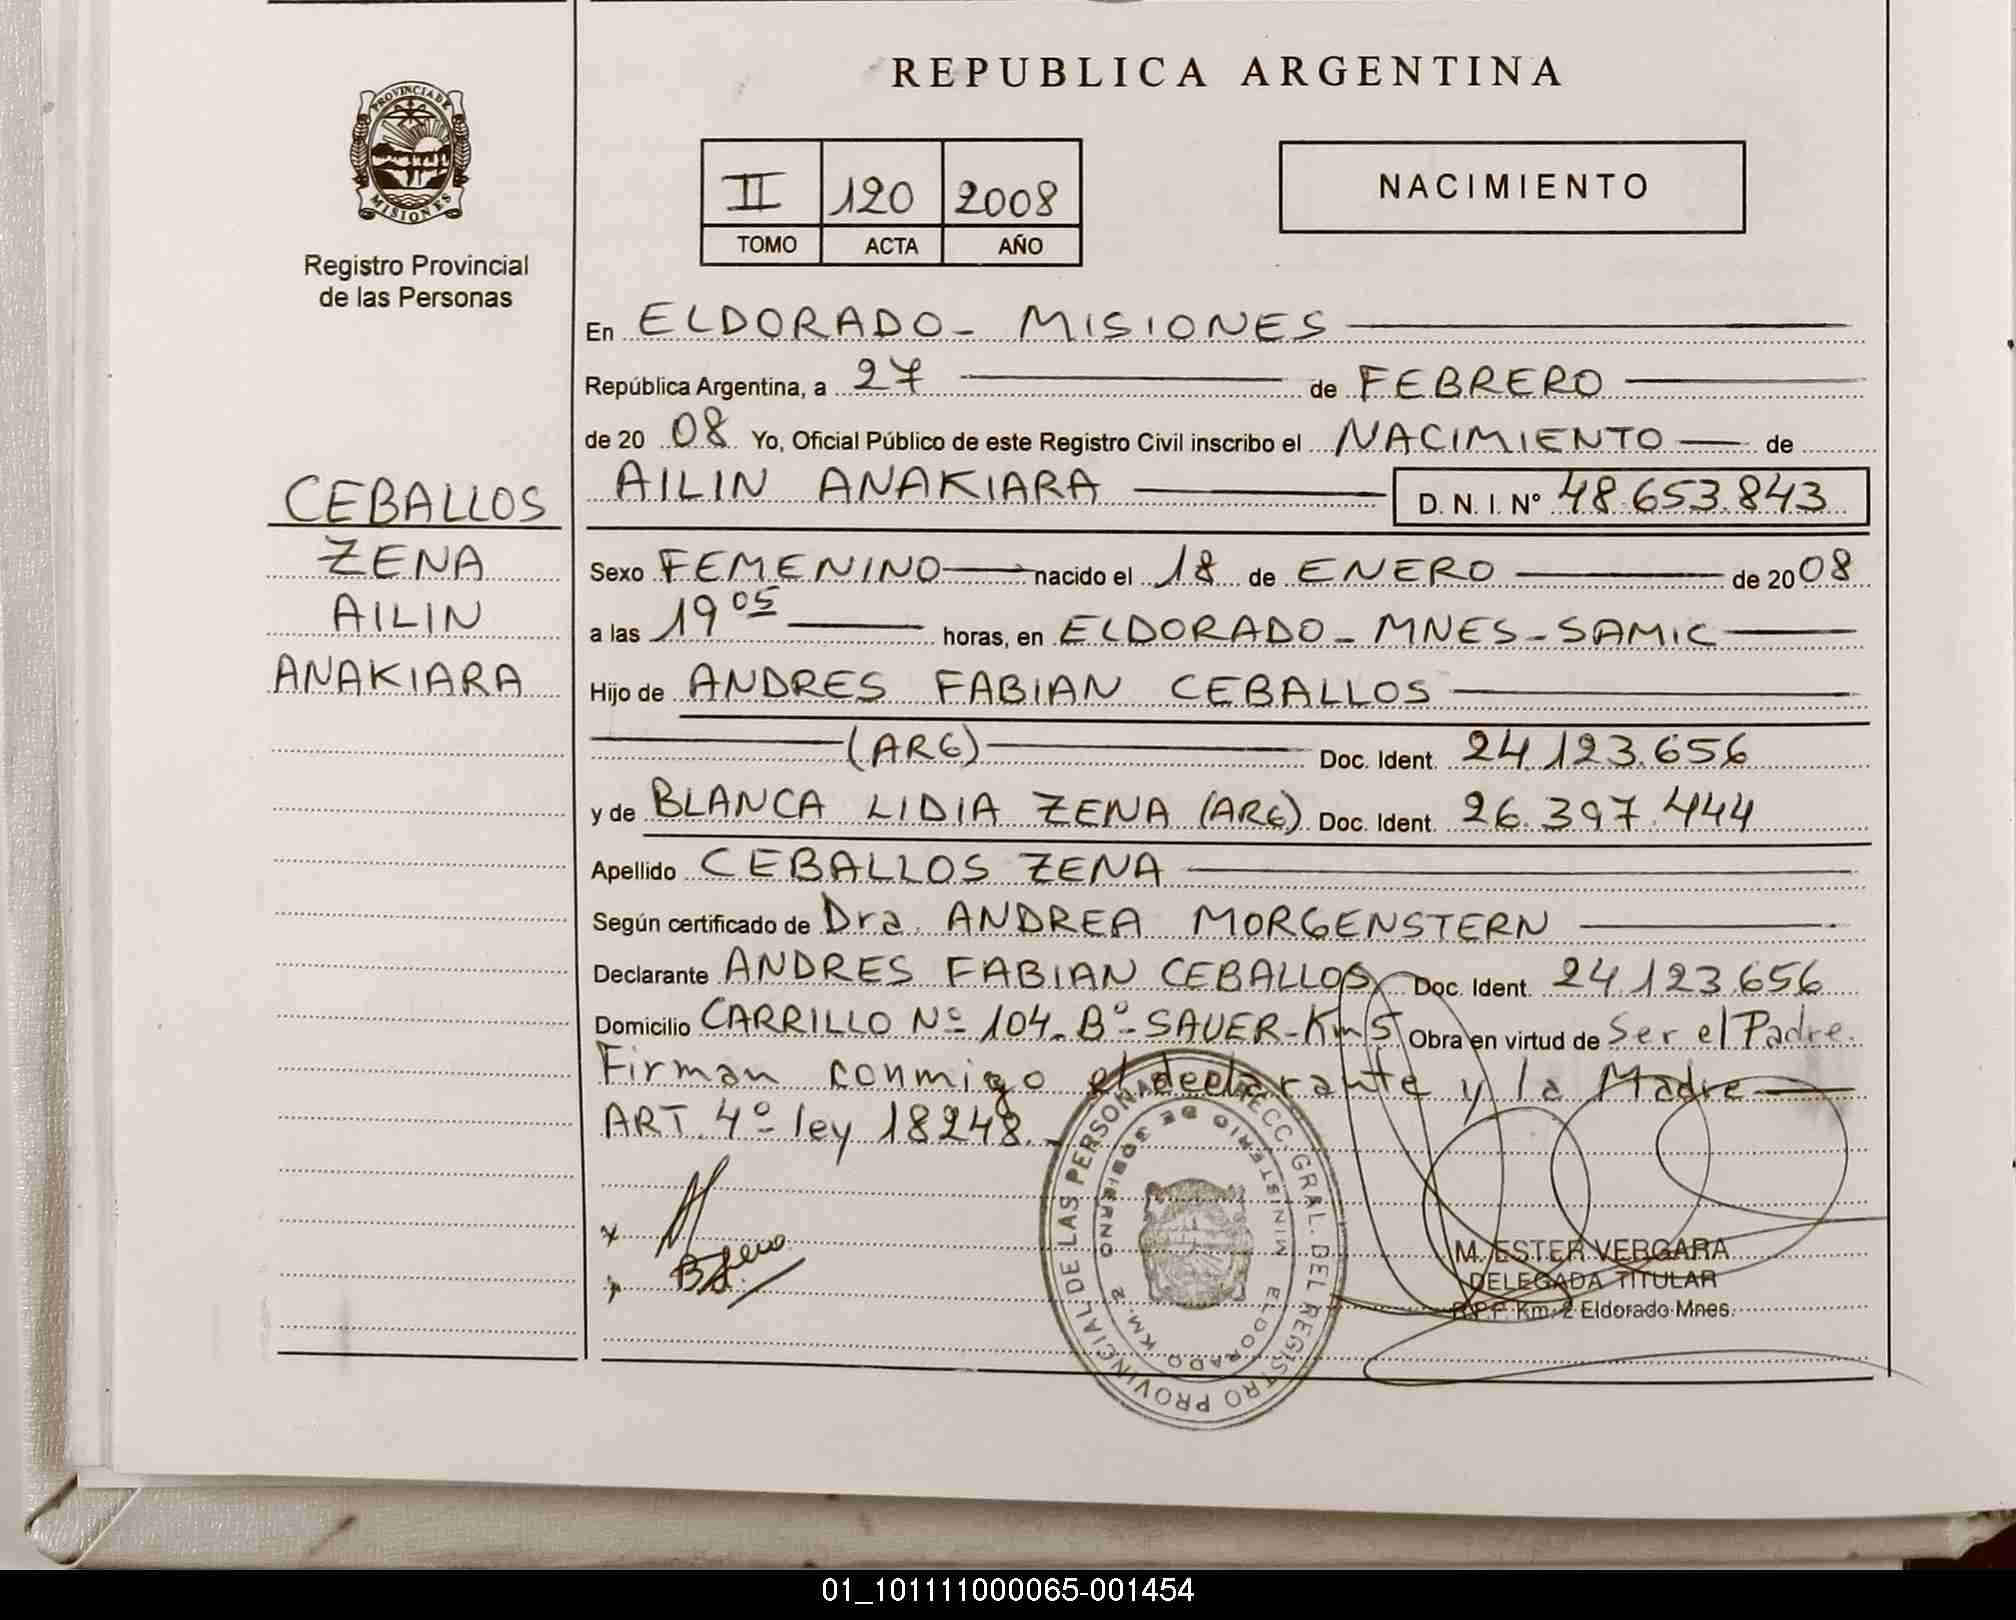 REPUBLICA ARGENTINA
PROVINCIA DE
MISIONES
Registro Provincial
de las Personas
II 120 2008
TOMO ACTA AÑO
NACIMIENTO
En ELDORADO- MISIONES
República Argentina, a 27 de FEBRERO
de 20 08 Yo, Oficial Público de este Registro Civil inscribo el NACIMIENTO de
CEBALLOS
ZENA
AILIN
ANAKIARA
AILIN ANAKIARA D. N. I. Nº 48.653.843
Sexo FEMENINO nacido el 18 de ENERO de 20 08
a las 19 05 horas, en ELDORADO - MNES - SAMIC
Hijo de ANDRES FABIAN CEBALLOS
(ARG) Doc. Ident. 24.123.656
y de BLANCA LIDIA ZENA (ARG) Doc. Ident. 26.397.444
Apellido CEBALLOS ZENA
Según certificado de Dra. ANDREA MORGENSTERN
Declarante ANDRES FABIAN CEBALLOS Doc. Ident. 24.123.656
Domicilio CARRILLO Nº 104 - Bº - SAUER - Km 5 Obra en virtud de Ser el Padre.
Firman conmigo el declarante y la Madre
ART. 4º ley 18248.
x
BZena
DIRECC. GRAL. DEL REGISTRO PROVINCIAL DE LAS PERSONAS
MINISTERIO DE GOBIERNO
ELDORADO KM. 2
M. ESTER VERGARA
DELEGADA TITULAR
R.P.P. Km. 2 Eldorado Mnes.
01_101111000065-001454